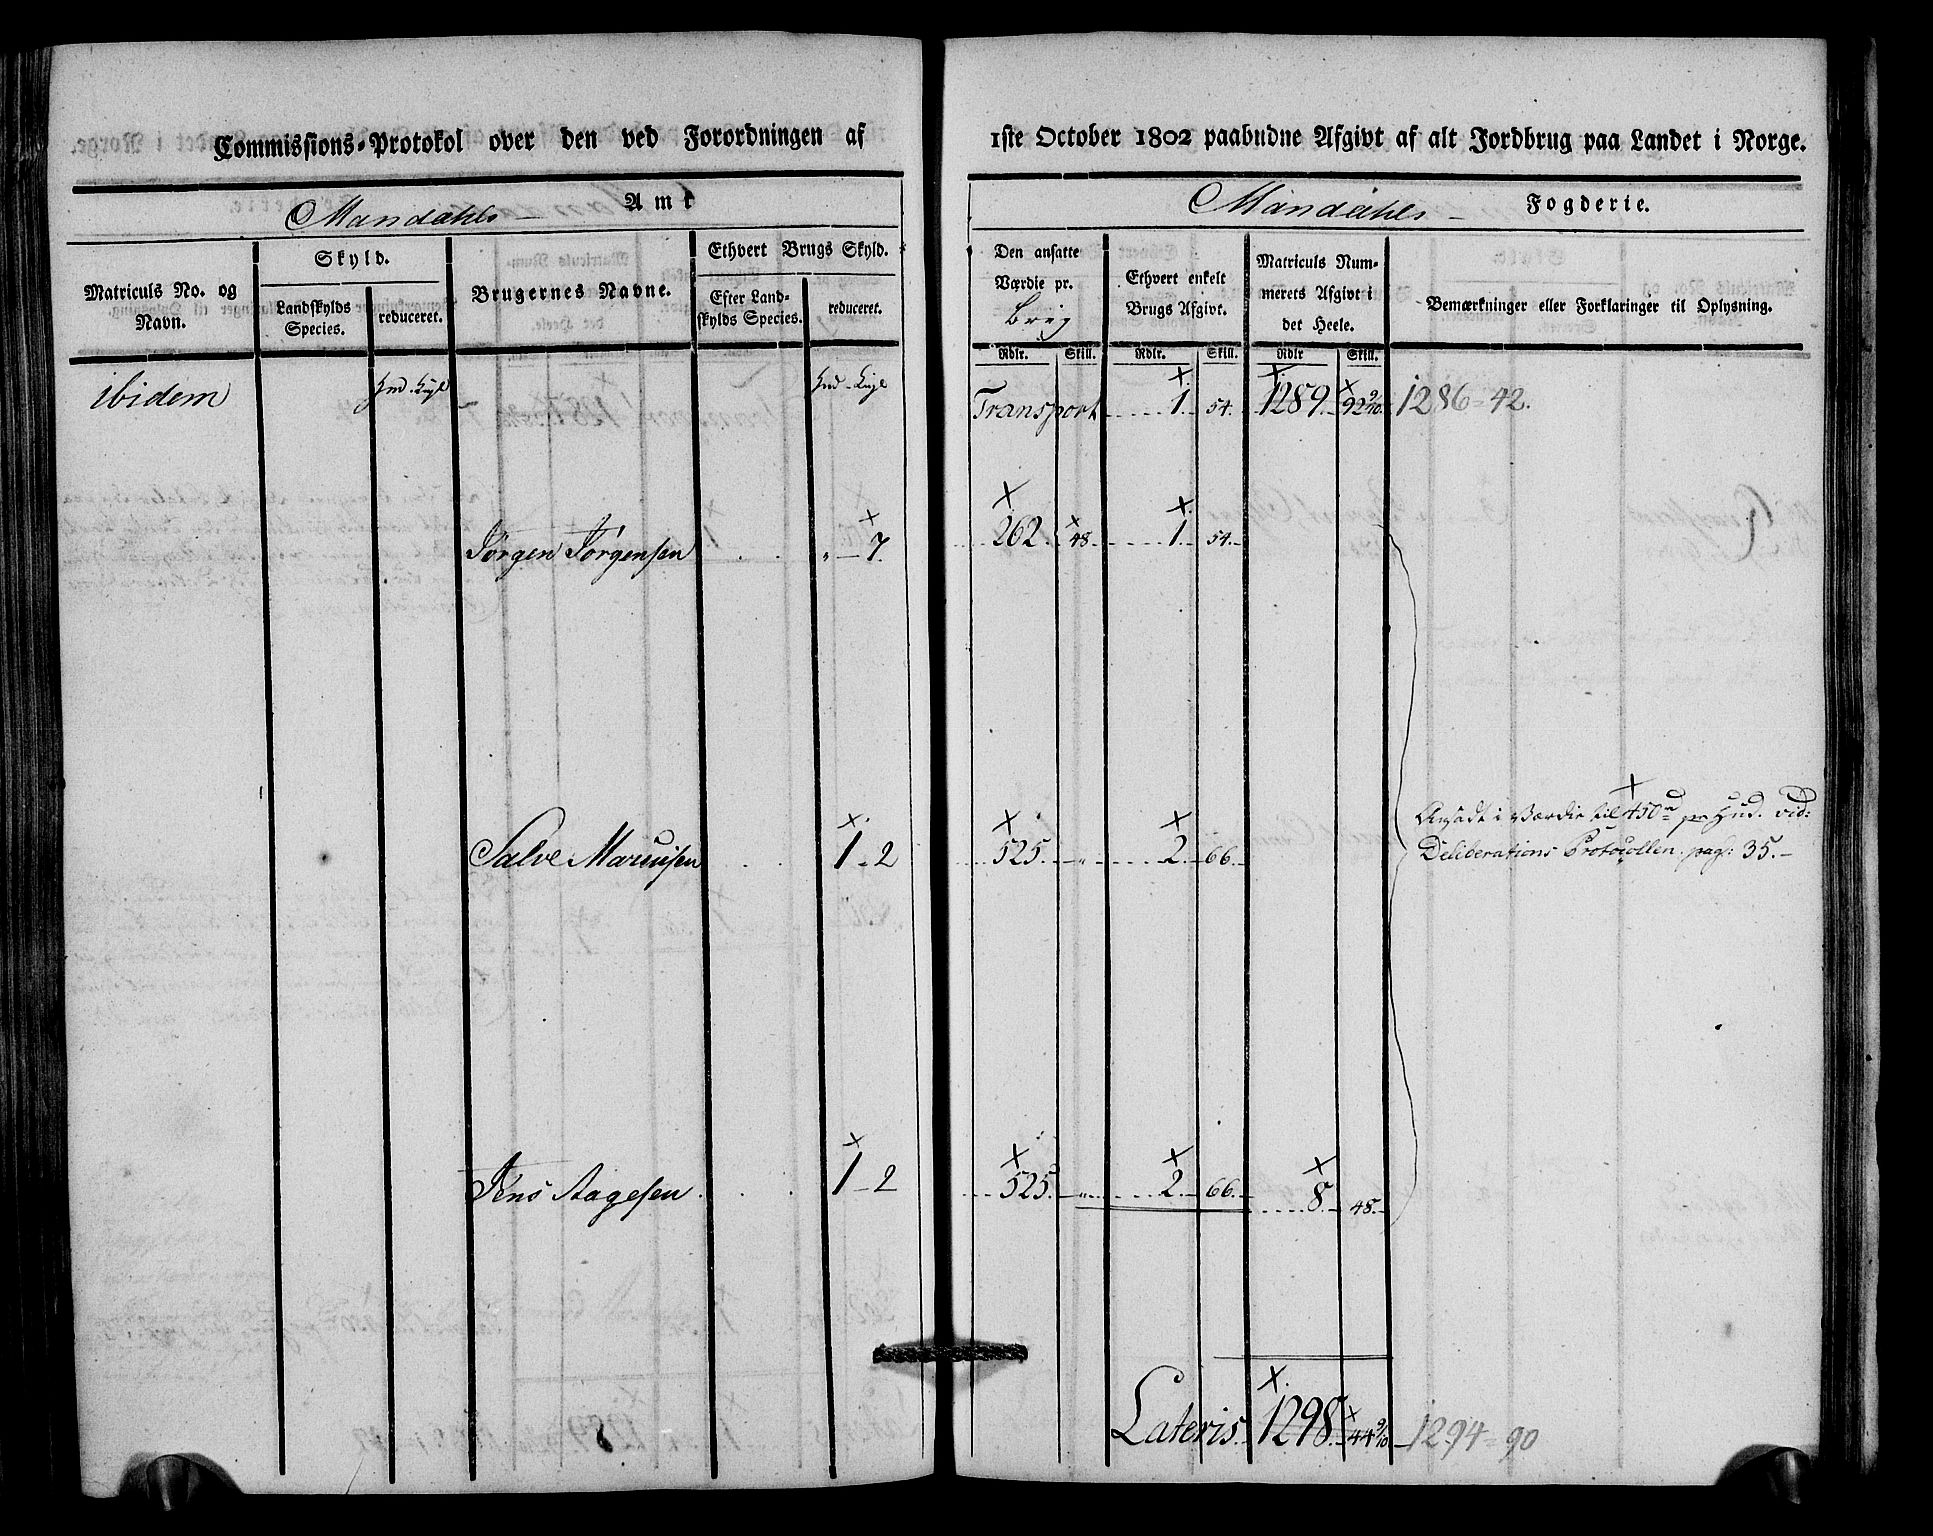 Commissions-Protokol over den ved Forordningen af 1ste October 1802 paabudne Afgivt af alt Jordbrug paa Landet i Norge.
Mandahls Amt
Mandahls Fogderie.
Matriculs No. og Navn.
Skyld.
Landskylds Species.
reduceret.
Brugernes Navne.
Ethvert Brugs Skyld.
Efter Landskylds Species.
reduceret.
Den ansatte Værdie pr.
Brug
Ethvert enkelt Brugs Afgivt.
Matriculs Nummerets Afgivt i det Heele.
Bemærkninger eller Forklaringer til Oplysning.
Rdlr. Skill. Rdlr. Skill. Rdlr Skill.
ibidem Transport 1. 54. 1289. 92 9/10. 1286=42.
Jørgen Jørgensen „ 7. 262. 48. 1. 54.
Salve Marcusen 1 - 2 525. „ 2. 66. Ansadt i Værdie til 450 rd pr Hud. vid:
Deliberations Protocollen. pag: 35.
Jens Aagesen 1 - 2 525. „ 2. 66. 8. 48.
Lateris 1298. 44 9/10 1294=90